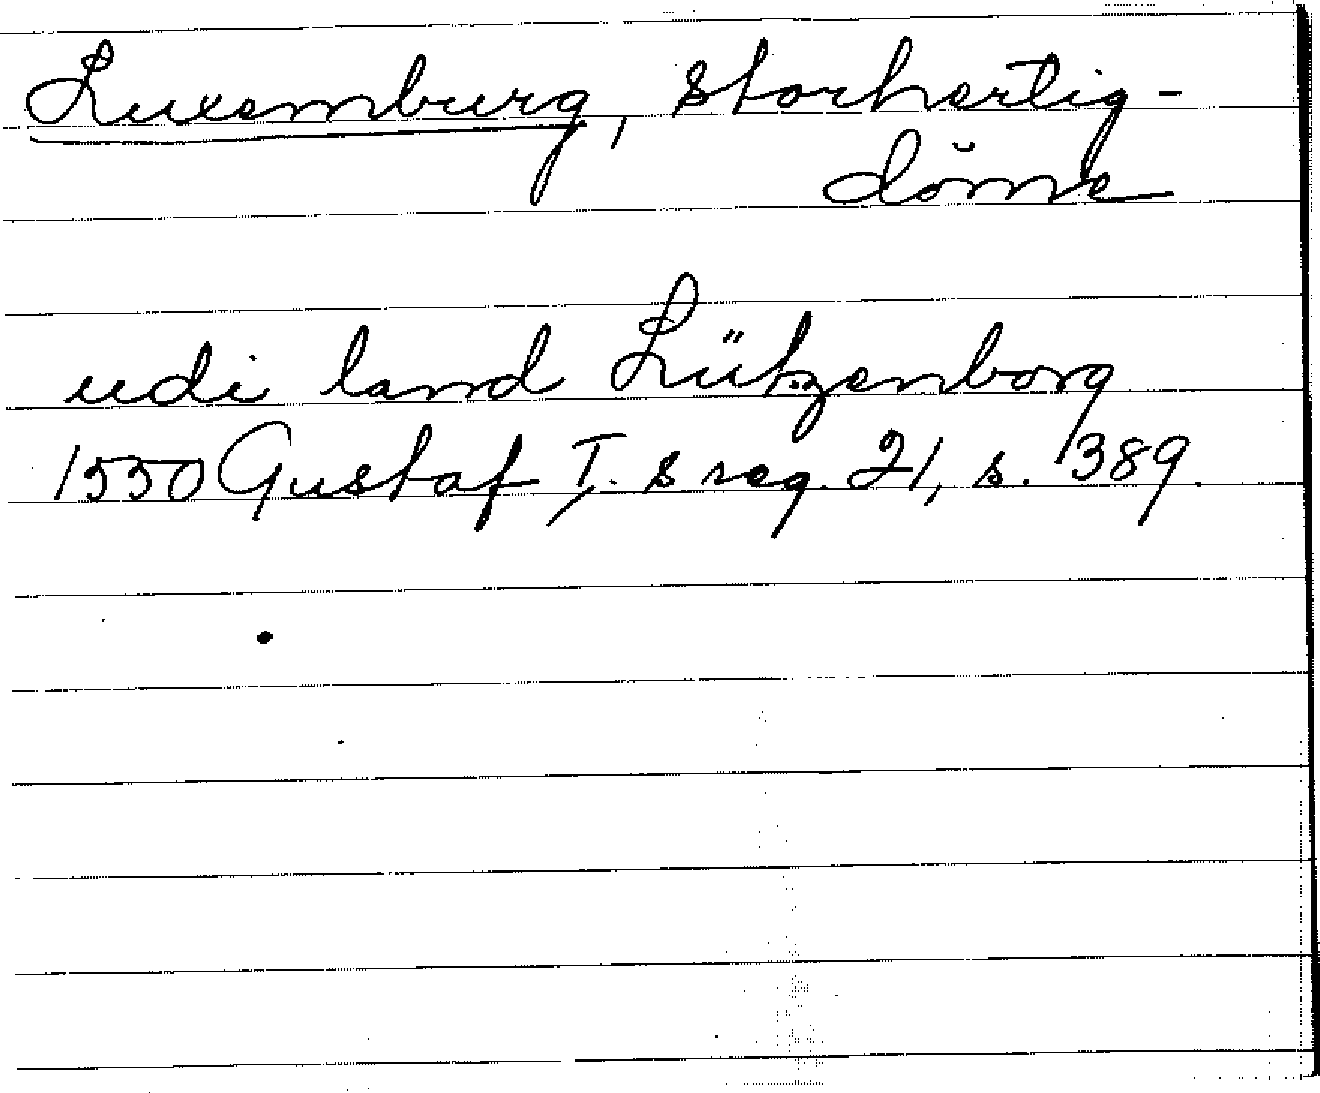 Luxemburg, storhertig-
döme
udi land Lützenborg
1550 Gustaf I:s reg. 21, s. 389.